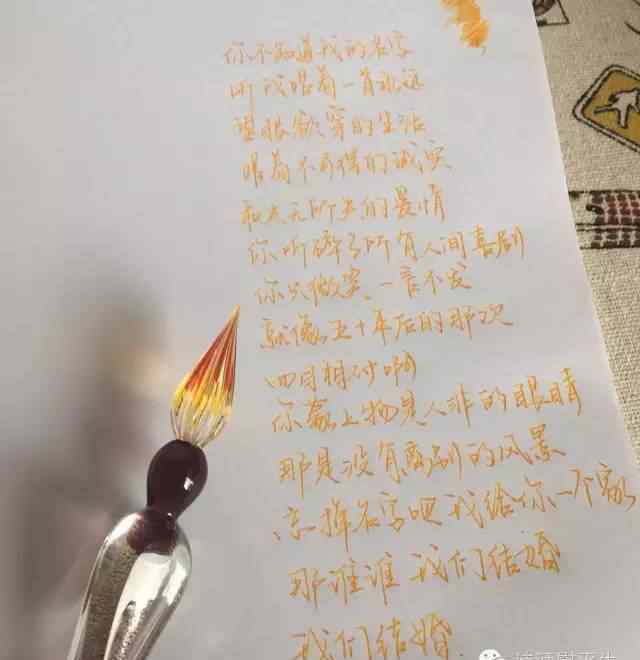 你不知道我的名字
听我唱着一首永远
望眼欲穿的生活
唱着不可的诚实
无所失的爱情
你听碎了所有人间喜剧
你只微笑、一言不发
就像五十年后的那次
四目相对啊
你蒙上物是人非的眼睛
那是没有离别的风景
忘掉名字吧 我给你一个家
那谁谁 我们结婚
我们结婚.